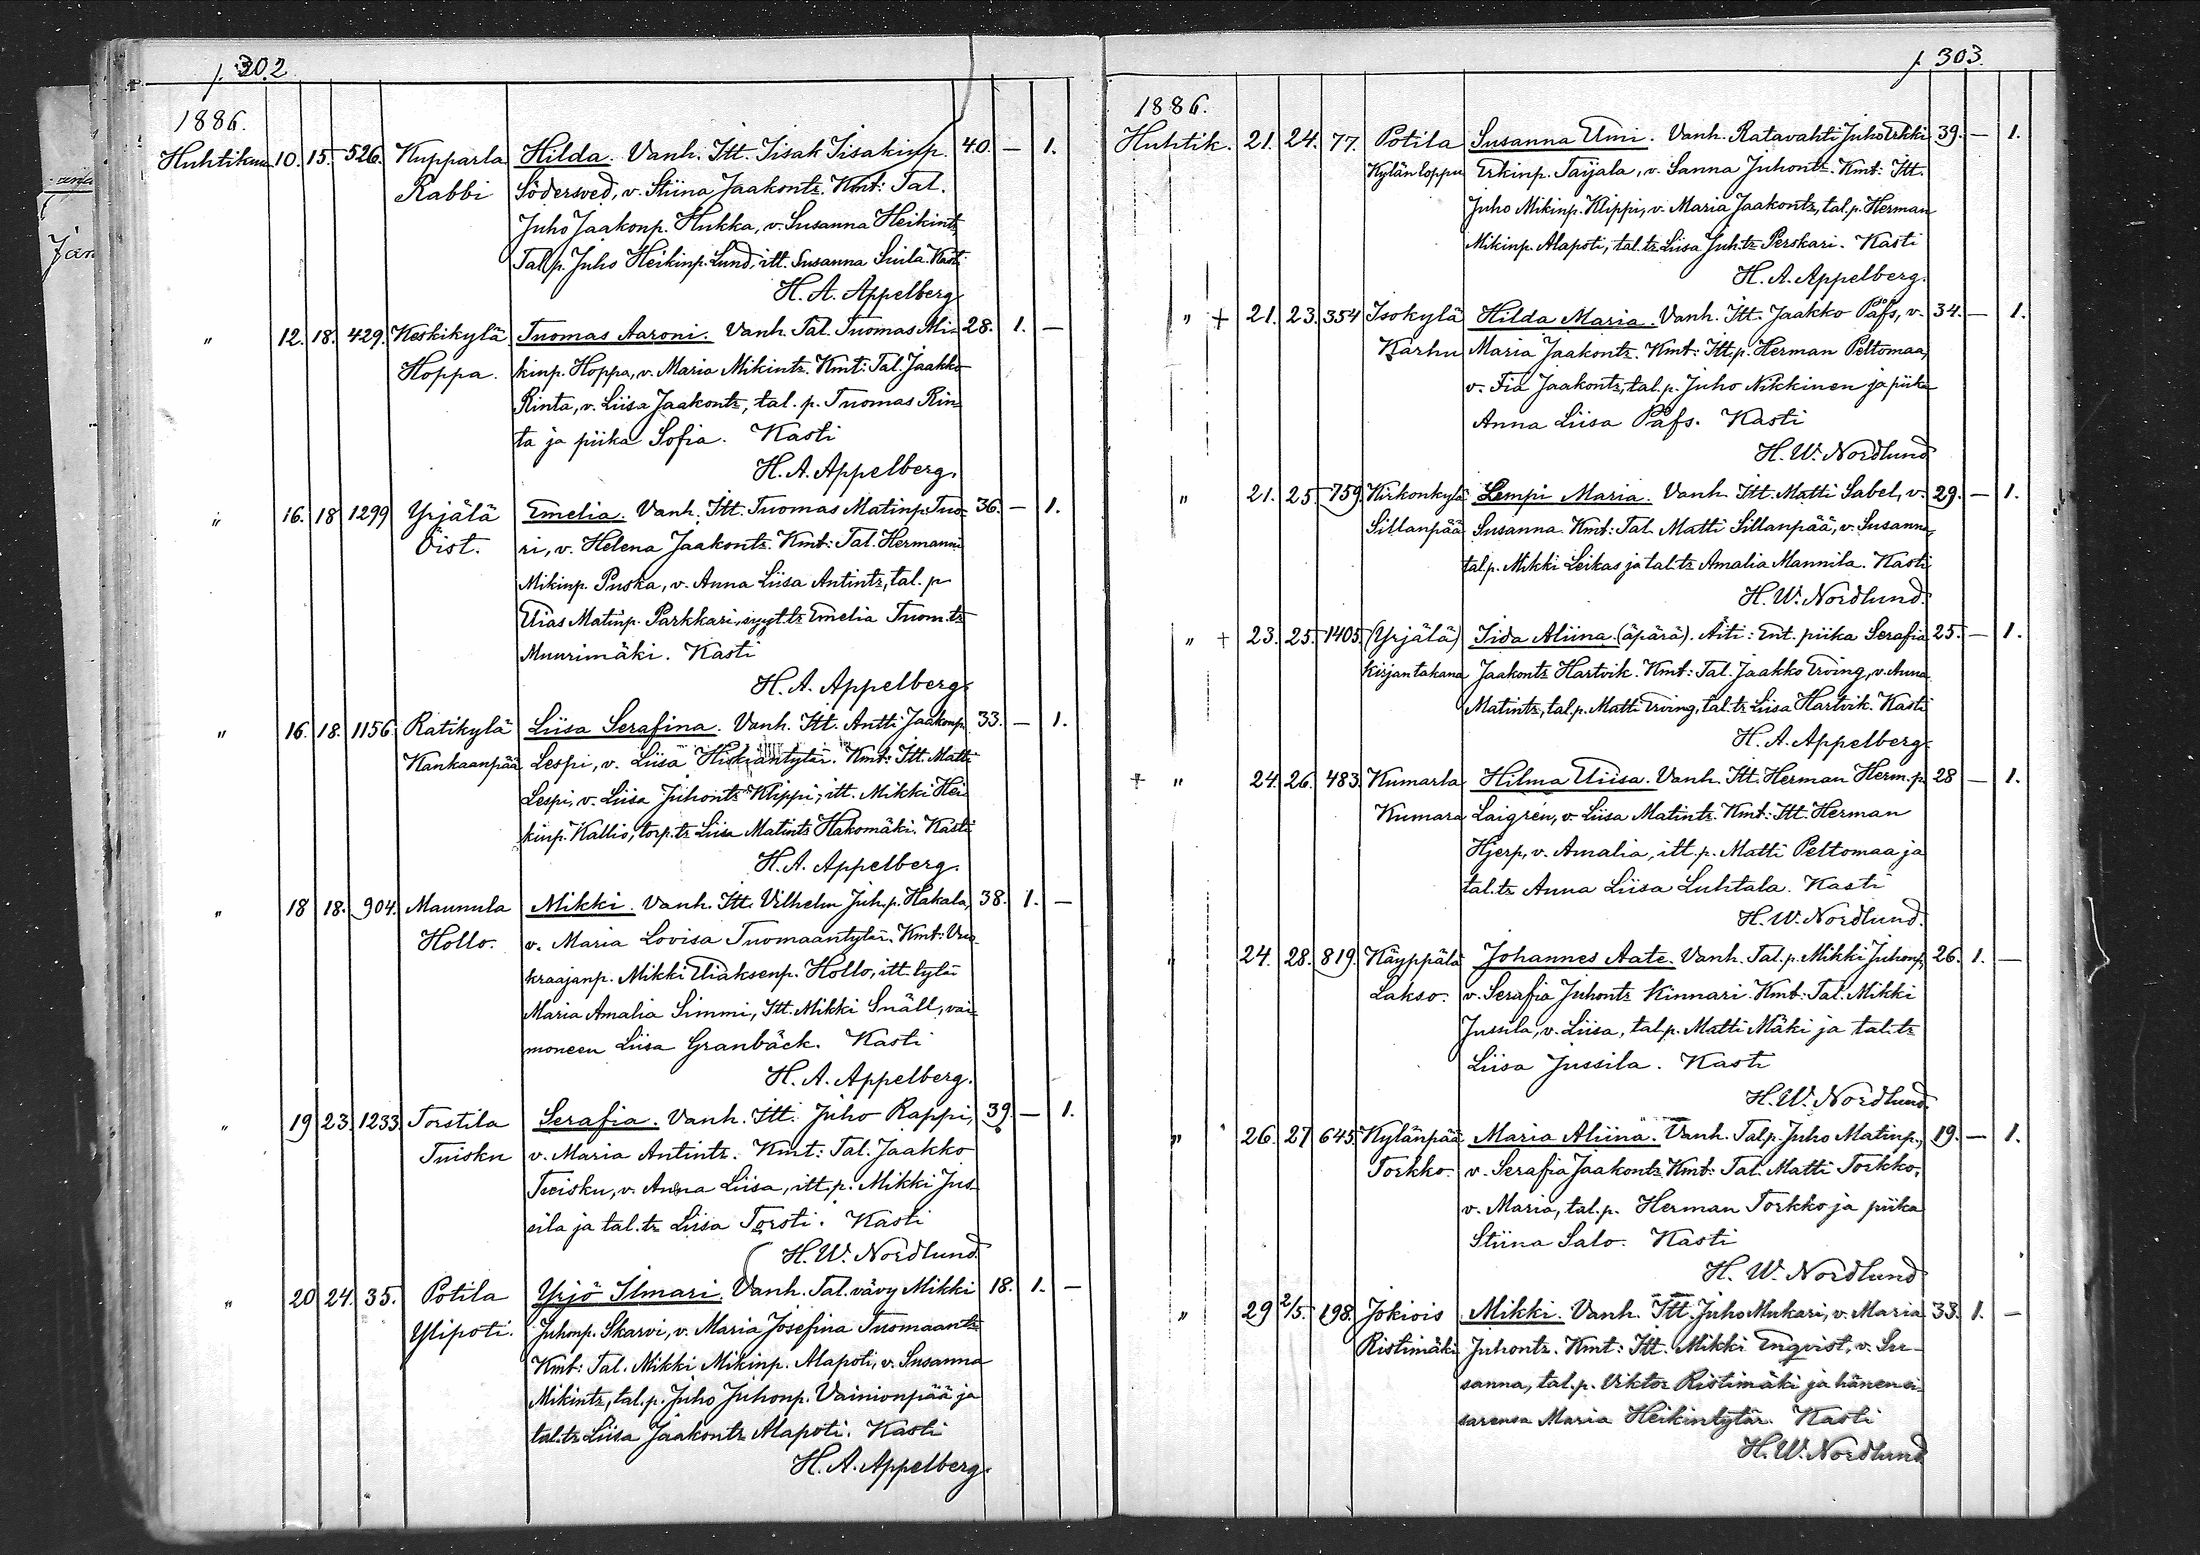 p. 302
1886.
Huhtikuu 10. 15. 526. Kupparla Hilda. Vanh. Itt. Iisak Iisakinp. 40. — 1.
Rabbi Södersved, v. Stiina Jaakontr. Kmt: Tal.
Juho Jaakonp. Hukka, v. Susanna Heikintr,
Tal. p. Juho Heikinp. Lund, itt. Susanna Kasti
H. A. Appelberg
" 12. 18. 429. Keskikylä Tuomas Aaroni. Vanh. Tal. Tuomas Mi- 28. 1. —
Hoppa. kinp. Hoppa, v. Maria Mikintr. Kmt: Tal. Jaakko
Rinta, v. Liisa Jaakontr, tal. p. Tuomas Rin-
ta ja piika Sofia. Kasti
H. A. Appelberg.
" 16. 18 1299 Yrjälä Emelia. Vanh. Itt. Tuomas Matinp. Tuo- 36. — 1.
Öist. ri, v. Helena Jaakontr. Kmt: Tal. Hermanni
Mikinp. Puska, v. Anna Liisa Antintr, tal. p
Elias Matinp. Parkkari, syyt.tr Emelia Tuom.tr
Muurimäki. Kasti
H. A. Appelberg.
" 16. 18. 1156. Ratikylä Liisa Serafina. Vanh. Itt. Antti Jaakonp. 33. — 1.
Kankaanpää Lespi, v. Liisa Hiskiantytär. Kmt: Itt. Matti
Lespi, v. Liisa Juhontr Klippi, itt. Mikki Hei-
kinp. Kallio, torp.tr Liisa Matintr Hakomäki. Kasti
H. A. Appelberg.
" 18 18. 904. Maunula Mikki. Vanh. Itt. Vilhelm Juh. p. Hakala, 38. 1. —
Hollo. v. Maria Lovisa Tuomaantytär. Kmt: Vuo-
kraajanp. Mikki Eliaksenp. Hollo, itt. tytär
Maria Amalia Simmi, Itt. Mikki Snäll, vai-
moneen Liisa Granbäck. Kasti
H. A. Appelberg.
" 19 23. 1233. Torstila Serafia. Vanh. Itt. Juho Rappi, 39. — 1.
Tuisku v. Maria Antintr. Kmt: Tal. Jaakko
Tuisku, v. Anna Liisa, itt. p. Mikki Jus-
sila ja tal.tr Liisa Torsti. Kasti
H. W. Nordlund
" 20 24. 35. Potila Yrjö Ilmari. Vanh. Tal. vävy Mikki 18. 1. —
Ylipoti. Juhonp. Skarvi, v. Maria Josefina Tuomaantr
Kmt: Tal. Mikki Mikinp. Alapoti, v. Susanna
Mikintr, tal. p. Juho Juhonp. Vainionpää ja
tal.tr Liisa Jaakontr Alapoti. Kasti
H. A. Appelberg.
p. 303.
1886.
Huhtik. 21. 24. 77. Potila Susanna Elmi. Vanh. Ratavahti Juho Erkki 39. — 1.
Kylänloppu Erkinp. Taijala, v. Sanna Juhontr. Kmt: Itt.
Juho Mikinp. Klippi, v. Maria Jaakontr, tal. p. Herman
Mikinp. Alapoti, tal.tr Liisa Juh.tr Perskari. Kasti
H. A. Appelberg.
" + 21. 23. 354 Isokylä Hilda Maria. Vanh. Itt. Jaakko Påfs, v. 34. — 1.
Karhu Maria Jaakontr. Kmt: Itt. p. Herman Peltomaa,
v. Fia Jaakontr, tal. p. Juho Nikkinen ja piika
Anna Liisa Påfs. Kasti
H. W. Nordlund
" 21. 25. 759. Kirkonkylä Lempi Maria. Vanh. Itt. Matti Sabel, v. 29. — 1.
Sillanpää Susanna. Kmt: Tal. Matti Sillanpää, v. Susanna,
tal. p. Mikki Leikas ja tal.tr Amalia Mannila. Kasti
H. W. Nordlund.
" + 23. 25. 1405. (Yrjälä) Iida Aliina (äpärä). Äiti: Ent. piika Serafia 25. — 1.
Kirjantakana Jaakontr Hartvik. Kmt: Tal. Jaakko Erving, v. Anna
Matintr, tal. p. Matti Erving, tal.tr Liisa Hartvik. Kasti
H. A. Appelberg.
+ " 24. 26. 483. Kumarla Hilma Eliisa. Vanh. Itt. Herman Herm. p. 28 — 1.
Kumara Laigrén, v. Liisa Matintr. Kmt: Itt. Herman
Hjerp, v. Amalia, itt. p. Matti Peltomaa ja
tal.tr Anna Liisa Luhtala. Kasti
H. W. Nordlund.
" 24. 28. 819. Käyppälä Johannes Aate. Vanh. Tal. p. Mikki Juhonp, 26. 1. —
Lakso. v. Serafia Juhontr Kinnari. Kmt: Tal. Mikki
Jussila, v. Liisa, tal. p. Matti Mäki ja tal.tr
Liisa Jussila. Kasti
H. W. Nordlund.
" 26. 27 645. Kylänpää Maria Aliina. Vanh. Tal p. Juho Matinp., 19. — 1.
Torkko. v. Serafia Jaakontr. Kmt: Tal. Matti Torkko,
v. Maria, tal. p. Herman Torkko ja piika
Stiina Salo. Kasti
H. W. Nordlund
" 29 2/5. 198. Jokiois Mikki. Vanh. Itt. Juho Mukari, v. Maria 33. 1. —
Ristimäki Juhontr. Kmt: Itt. Mikki Enqvist, v. Su-
sanna, tal. p. Viktor Ristimäki ja hänen si-
sarensa Maria Heikintytär. Kasti
H. W. Nordlund